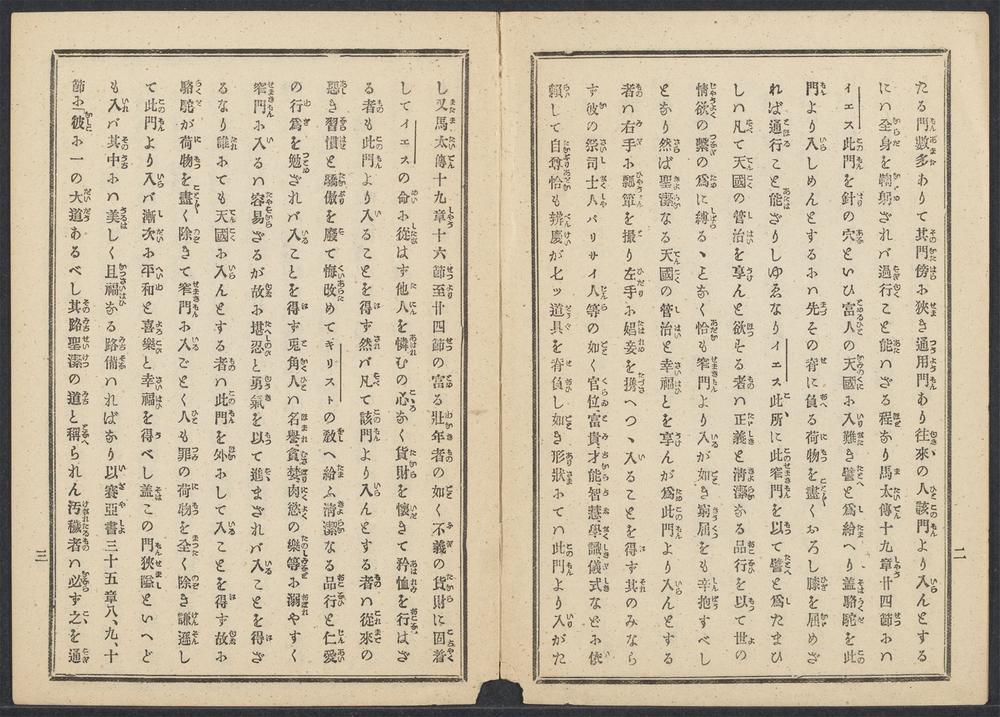 たる門數多ありて其門傍に狹き通用門あり往來の人該門より入んとする
にハ全身を鞠躬ざれバ過行こと能ハざる程なり馬太傳十九章廿四節にハ
イエス此門を針の穴といひ富人の天國に入難き譬と爲給へり蓋駱駝を此
門より入しめんとするに先その脊に負る荷物を盡くおろし膝を屈めざ
れば通行こと能ざりしゆゑなりイエス此所に此窄門を以て譬と爲たまひ
しハ凡て天國の管治を享んと欲する者ハ正義と淸潔なる品行を以て世の
情欲の繫の爲に縛るゝとなく恰も窄門より入が如き窮屈をも辛抱すべし
となり然ば聖潔なる天國の管治と幸福とを享んが爲此門より入んとする
者ハ右手に瓢簞を撮り左手に娼妾を携へつゝ入ることを得ず其のみなら
ず彼の祭司士人バリサイ人等の如く官位富貴才能智慧學識儀式などに依
賴して自尊恰も辨慶が七ッ道具を脊負し如き形狀にてハ此門より入がた
二
し又馬太傳十九章十六節至廿四節の富る壯年者の如く不義の貨財に固着
してイエスの命に從はず他人を憐むの心なく貨財を懷きて矜恤を行はざ
る者も此門より入ることを得ず然バ凡て該門より入んとする者ハ從來の
惡き習慣と驕傲を廢て悔改めてキリストの敎へ給ふ淸潔なる品行と仁愛
の行爲を勉ざれバ入ることを得ず兎角人ハ名譽貪婪肉慾の樂等に溺やすく
窄門に入るハ容易ざるが故に堪忍と勇氣を以て進まざれバ入ることを得ざ
るなり誰にても天國に入んとする者ハ此門を外にして入ことを得ず故に
駱駝が荷物を盡く除きて窄門に入ごとく人も罪の荷物を全く除き謙遜し
て此門より入バ漸次に平和と喜樂と幸福を得べし盖この門狹隘といへど
も入バ其中にハ美しく且福なる路備ハればなり以賽亞書三十五章八、九、十
節に「彼に一の大道あるべし其路聖潔の道と稱られん汚穢者ハ必ず之を通
三